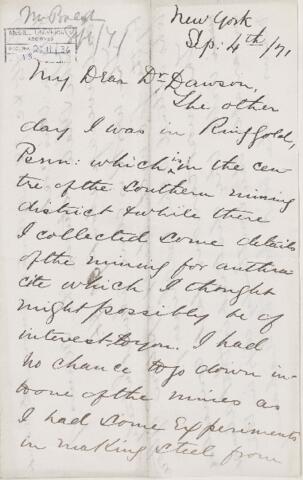 New York
Sep: 4th/71
My Dear Dr Dawson,
The other
day I was in Ringgold,
Penn: which is in the cen-
tre of the southern mining
district & while there
I collected some details
of the mining for anthra
cite which I thought
might possibly be of
interest to you. I had
no chance to go down in-
to one of the mines as
I had some experiments
in making steel from